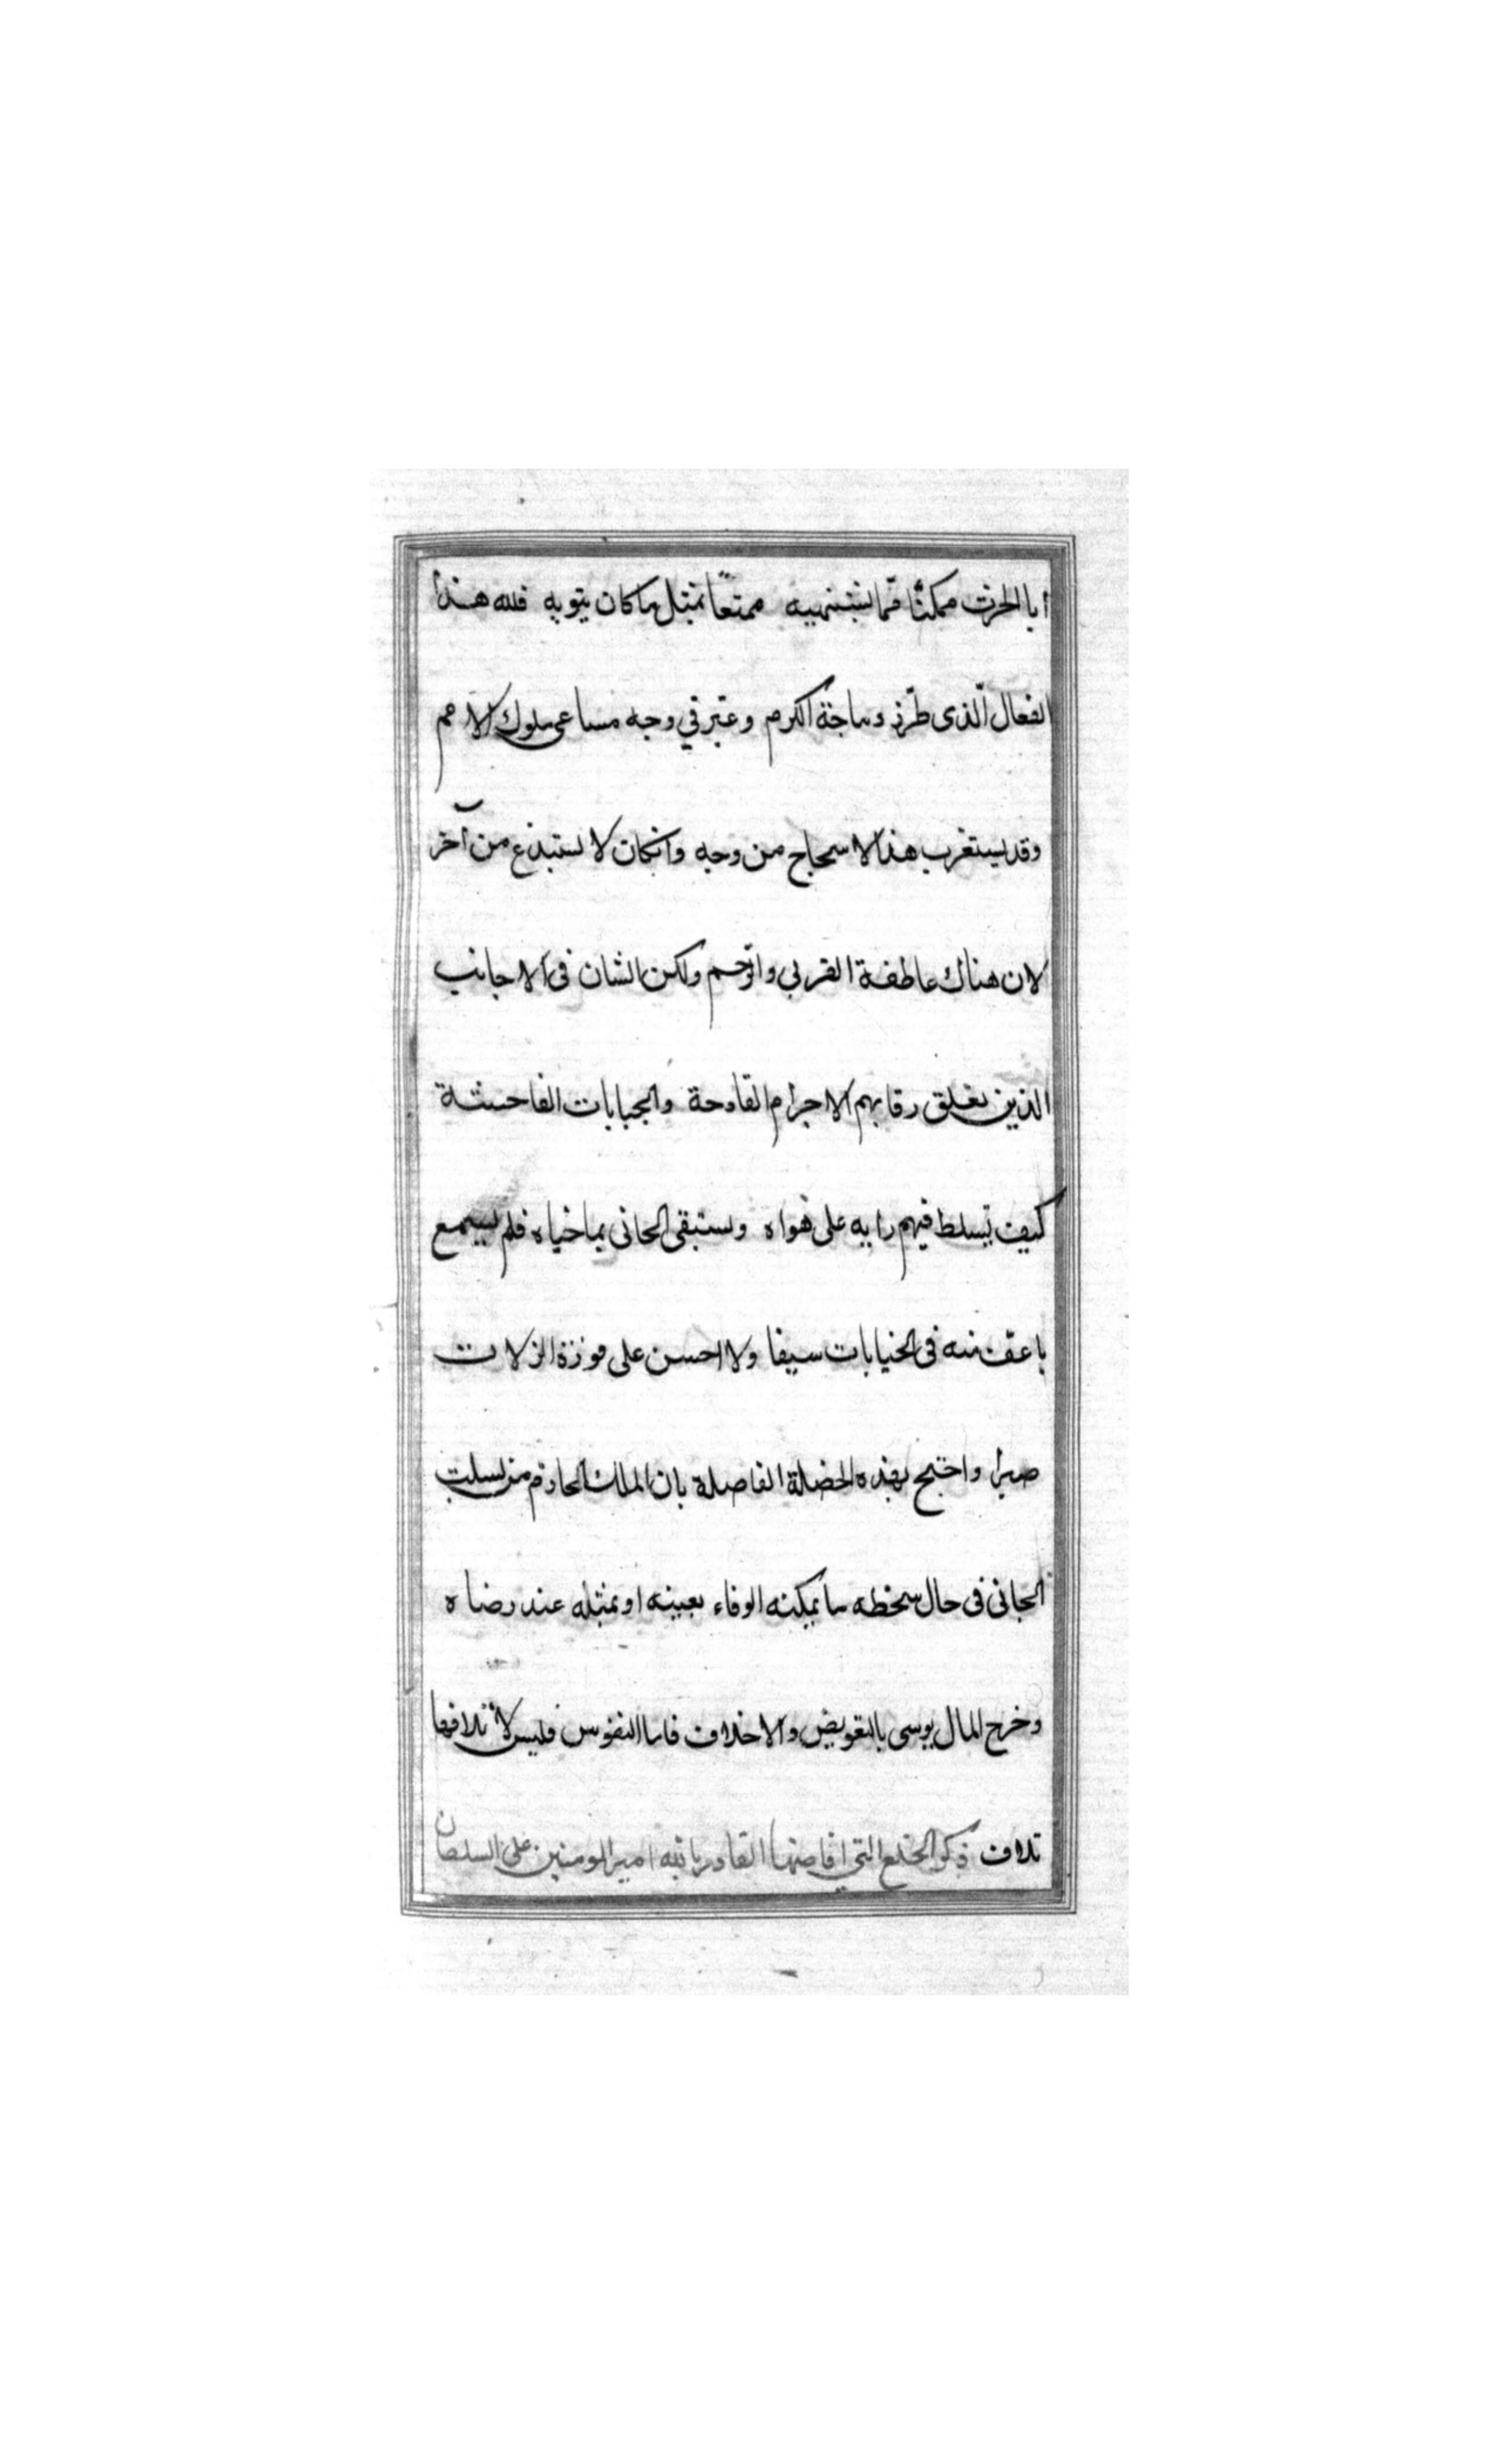 ابا الحرث ممكنّا ممّا يشتهيه ممتعًا بمثل ما كان ينويه فلله هذا
الفعال الّذى طرّز ديباجة الكرم وغبّر في وجه مساعى ملوك الامم
وقد يستغرب هذا الاسحاح من وجه وانكان لا يستبدع من آخر
لان هناك عاطفة القربي والرّحم ولكن الشان فى الاجانب
الذين تعلق رقابهم الاجرام القادحة والجبايات الفاحشة
كيف تسلط فيهم رايه على هواه ويستبقى الجانى بما خياه فلم يسمع
باعفّ منه فى الخيابات سيفا ولا احسن على موزة الزلات
صبرا واحتج بهذه الخصلة الفاصلة بان الملك الحازم من يسلب
الجانى فى حال سخطه ما يمكنه الوفاء بعينه او بمثله عند رضاه
وخرج المال يوسى بالتعويض والاخلاف فاما النفوس فليس لا تلافها
تلاف ذكر الخلع التي افاضها القادر بالله امير المومنين على السلطان